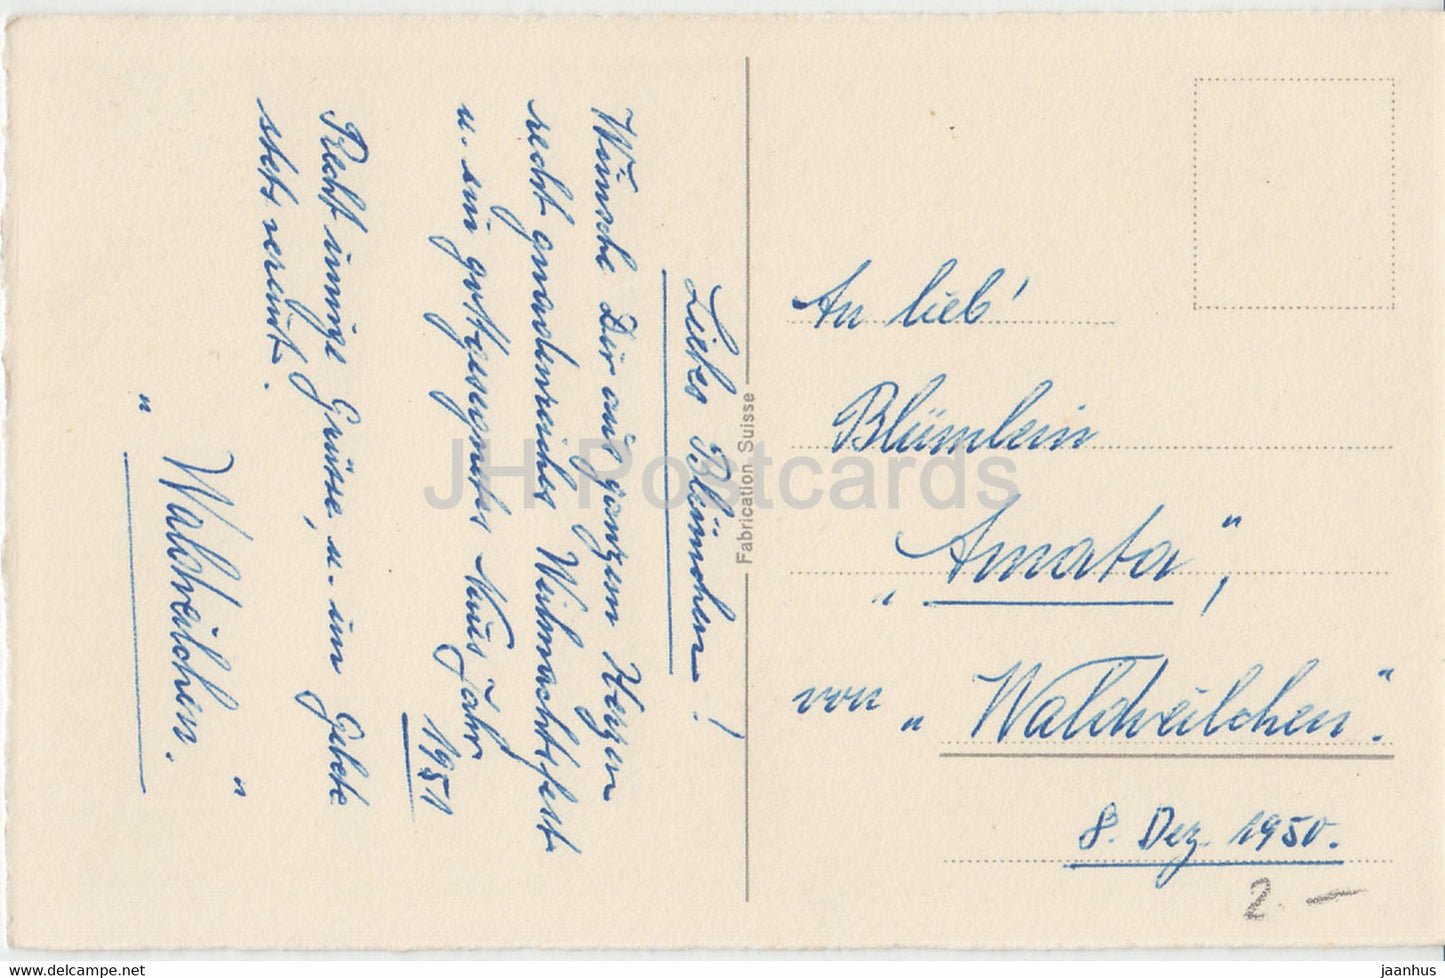 Liebes Blümchen!
Wünsche Dir aus ganzem Herzen
recht gnadenreiches Weihnachtsfest
u. ein gottgesegnetes Neues Jahr
1951
Recht innige Grüsse, u. im Gebete
stets vereint.
„Waldveilchen."
Fabrication Suisse
An lieb'
Blümlein
„Amata",
von „Waldveilchen".
8. Dez. 1950.
2.—
JH Postcards
jaanhus